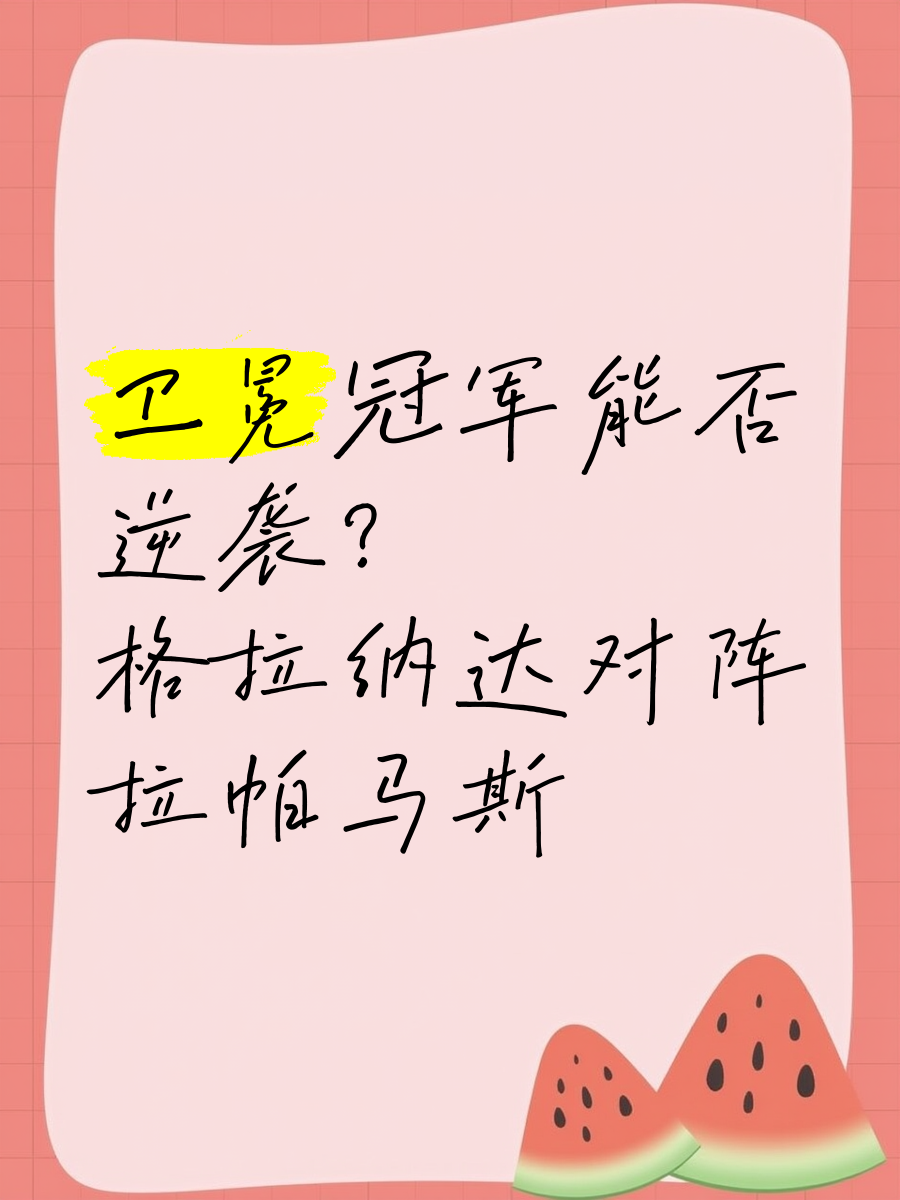 卫冕冠军能否
逆袭？
格拉纳达对阵
拉帕马斯